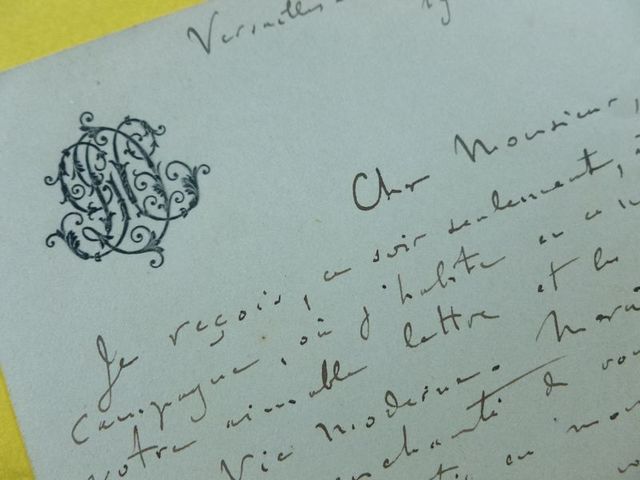 Versailles
Cher Monsieur,
Je reçois, ce soir seulement,
campagne, où j'habite en ce
votre aimable lettre et les
Vie moderne.
enchanté de
en mon